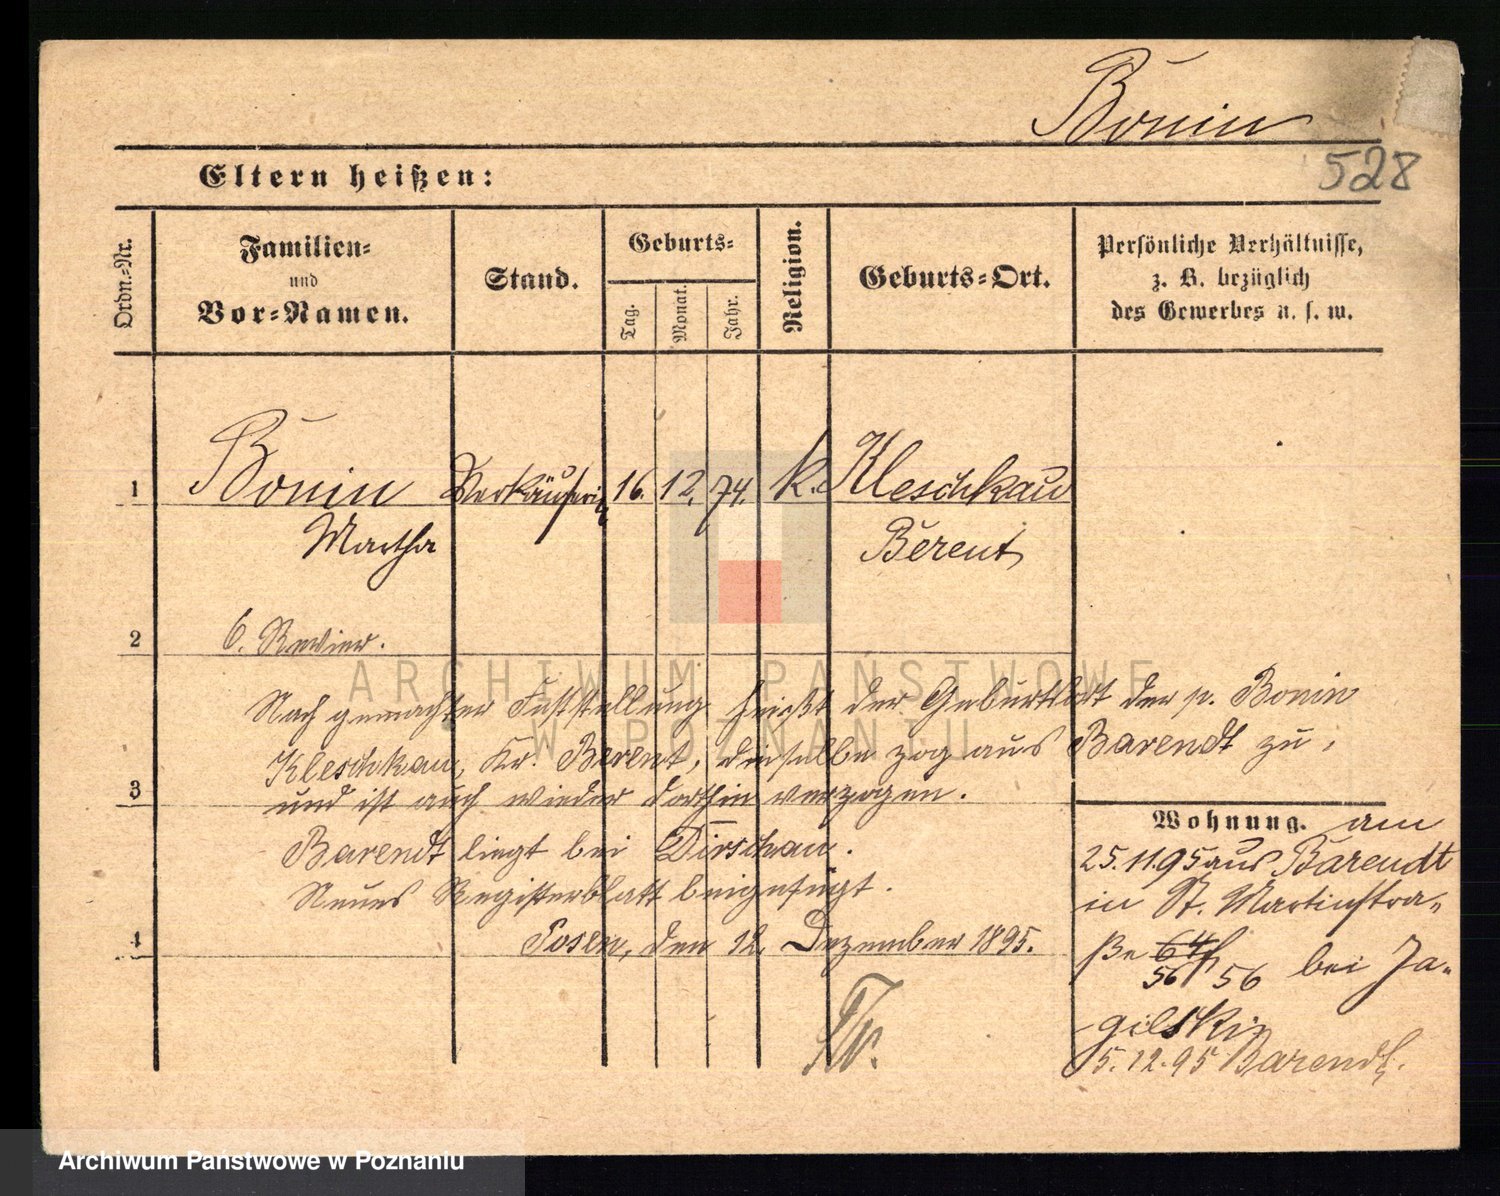 Bonin
528
Eltern heißen:
Ordn.-Nr.
Familien-
und
Vor-Namen.
Stand.
Geburts-
Tag.
Monat.
Jahr.
Religion.
Geburts-Ort.
Persönliche Verhältnisse,
z. B. bezüglich
des Gewerbes u. s. w.
1 Bonin Verkäuferin 16. 12. 74. k. Kleschkau
Martha Berent
2 6. Revier.
ARCHIWUM PAŃSTWOWE
W POZNANIU
Nach gemachter Feststellung heißt der Geburtsort der p. Bonin
Kleschkau, Kr. Berent, dieselbe zog aus Barendt zu,
3 und ist auch wieder dorthin verzogen.
Barendt liegt bei Dirschau.
Neues Registerblatt beigefügt.
4 Posen, den 12. Dezember 1895.
Wohnung. am
25.11.95 aus Barendt
in St. Martinstra-
ße 64
56 56 bei Ja-
gilski
5.12.95 Barendt.
Archiwum Państwowe w Poznaniu